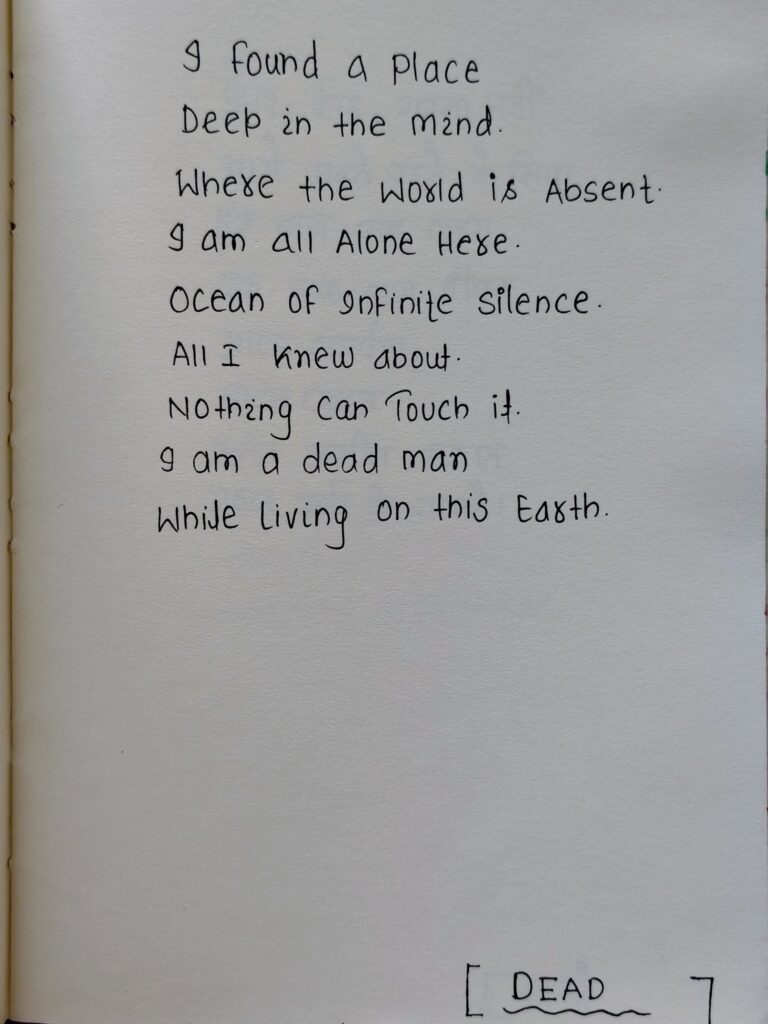 I found a Place
Deep in the mind.
Where the World is Absent.
I am all Alone Here.
Ocean of Infinite Silence.
All I Knew about.
Nothing Can Touch it.
I am a dead man
While Living on this Earth.
[ DEAD ]